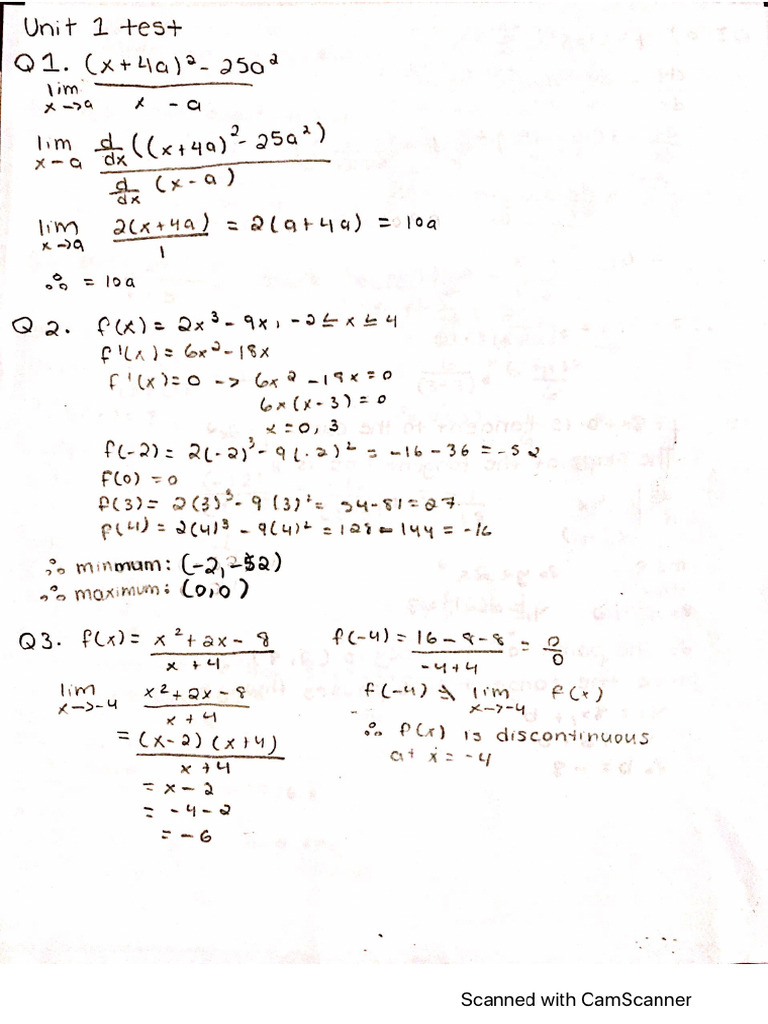 Unit 1 test
Q1. (x+4a)² - 25a²
lim x→a x - a
lim x-a d/dx ((x+4a)² - 25a²)
d/dx (x-a)
lim x→a 2(x+4a)/1 = 2(a+4a) = 10a
∴ = 10a
Q2. f(x) = 2x³ - 9x, -2 ≤ x ≤ 4
f'(x) = 6x² - 18x
f'(x) = 0 -> 6x² - 18x = 0
6x(x-3) = 0
x = 0, 3
f(-2) = 2(-2)³ - 9(-2)² = -16 - 36 = -52
f(0) = 0
f(3) = 2(3)³ - 9(3)² = 54 - 81 = 27
f(4) = 2(4)³ - 9(4)² = 128 - 144 = -16
∴ minmum: (-2, -52)
∴ maximum: (0,0)
Q3. f(x) = x² + 2x - 8 / x + 4
lim x→-4 x² + 2x - 8 / x + 4
= (x-2)(x+4) / x + 4
= x - 2
= -4 - 2
= -6
f(-4) = 16 - 8 - 8 / -4 + 4 = 0/0
f(-4) ≠ lim x→-4 f(x)
∴ f(x) is discontinuous
at x = -4
Scanned with CamScanner